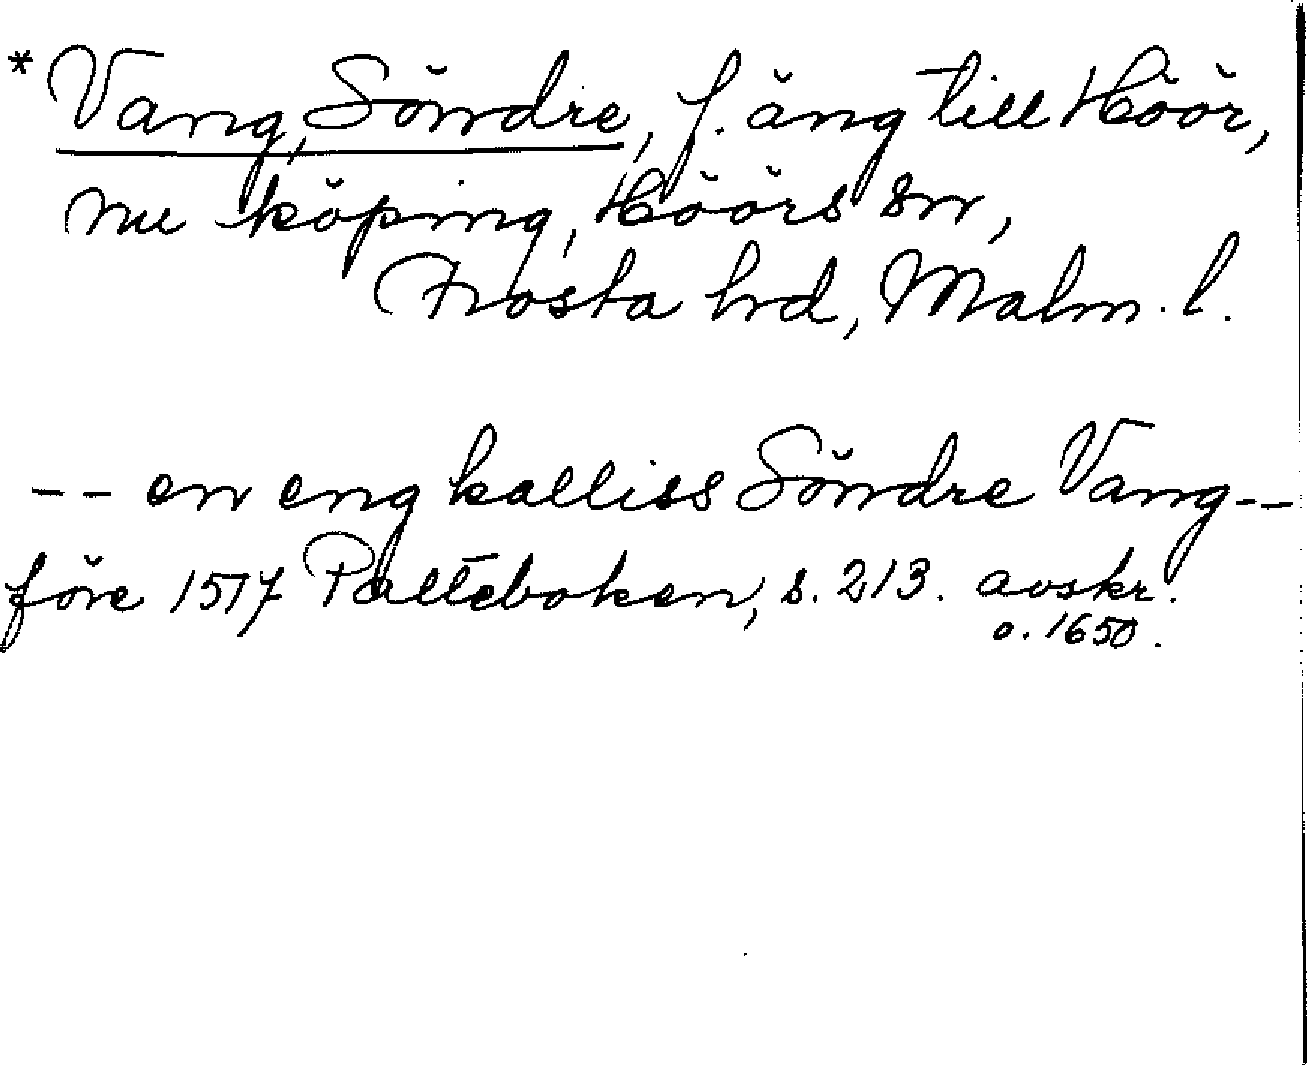 *Vang, Söndre, f. äng till Höör,
nu köping, Höörs sn,
Frosta hrd, Malm. l.
-- en eng kalliss Söndre Vang--
före 1517 Palteboken, s. 213. avskr.
o. 1650.